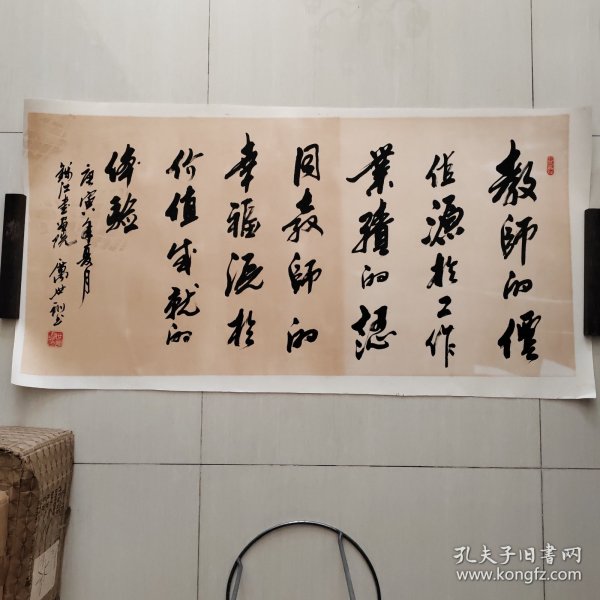 教師的價
值源於工作
業績的認
同教師的
幸福源於
价值成就的
体驗
庚寅年夏月
孔夫子旧书网
www.kongfz.com